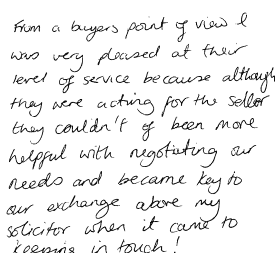 From a buyers point of view I
was very pleased at their
level of service because although
they were acting for the seller
they couldn't of been more
helpful with negotiating our
needs and became key to
our exchange above my
solicitor when it came to
keeping in touch!